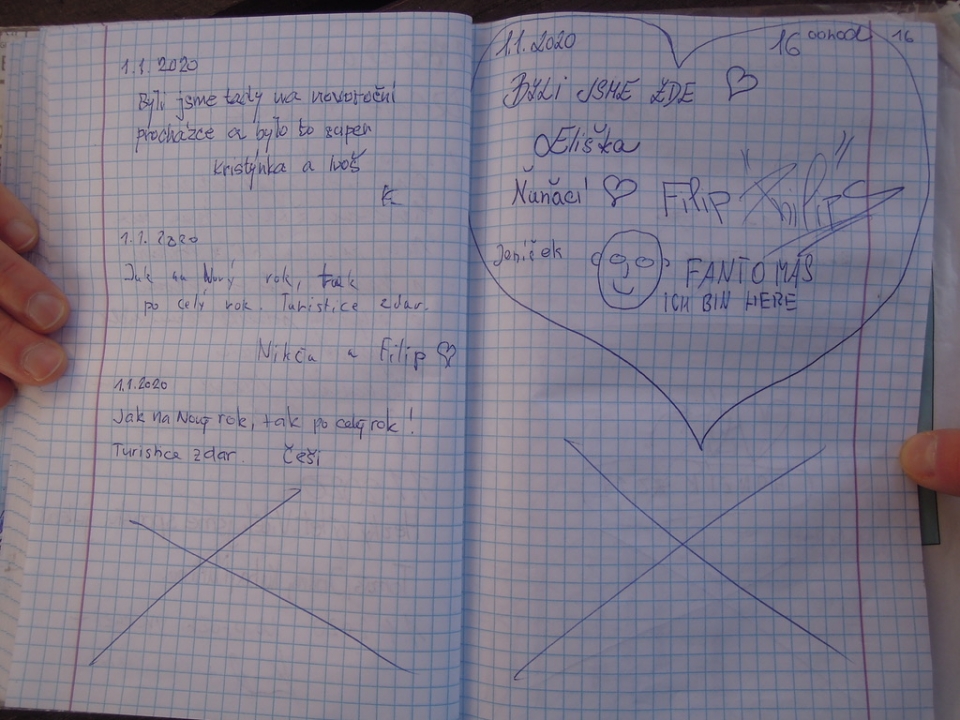 1.1.2020
Byli jsme tady na novoroční
procházce a bylo to super
Kristýnka a Ivoš
K
1.1.2020
Jak na Nový rok, tak
po celý rok. Turistice zdar.
Nikča a Filip
1.1.2020
Jak na Nový rok, tak po celý rok!
Turistice zdar. Češi
1.1.2020 16 16
BYLI JSME ZDE
Eliška
Ňuňáci Filip "Filip"
Jeníček
FANTOMÁS
ICH BIN HERE